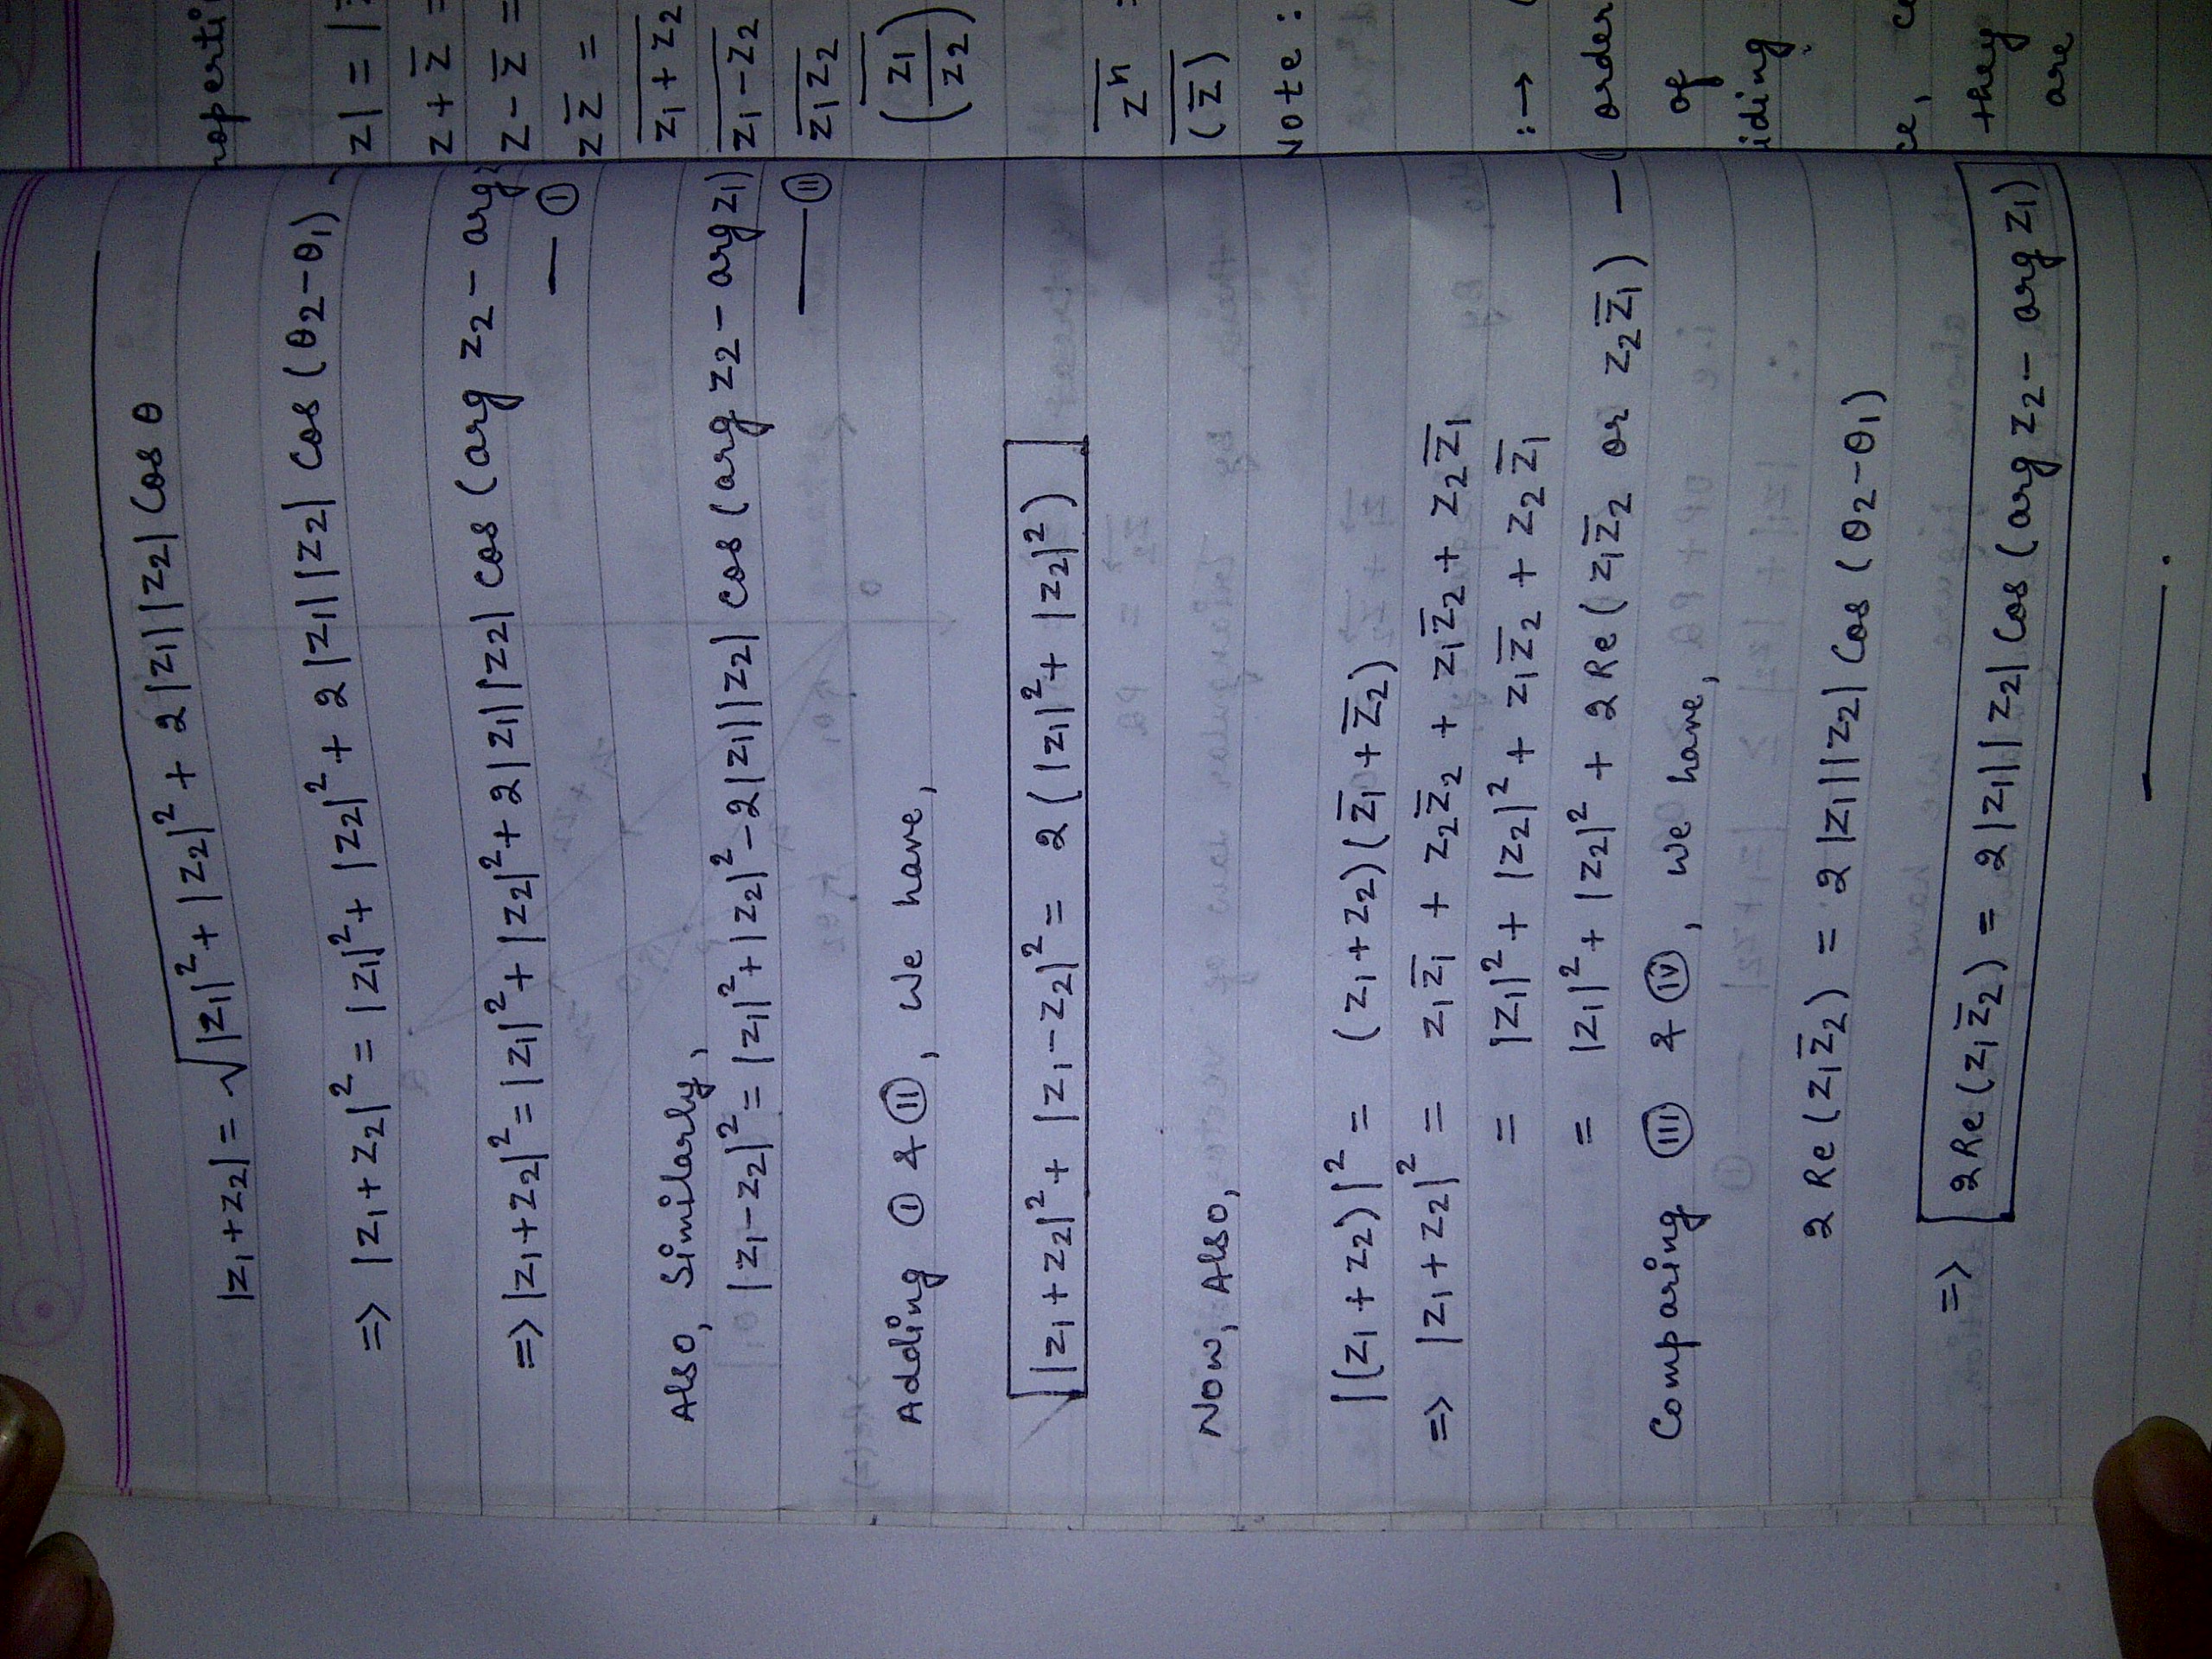 |z₁+z₂| = √(|z₁|² + |z₂|² + 2|z₁||z₂| Cos θ)
=> |z₁+z₂|² = |z₁|² + |z₂|² + 2|z₁||z₂| Cos (θ₂-θ₁)
=> |z₁+z₂|² = |z₁|² + |z₂|² + 2|z₁||z₂| Cos (arg z₂ - arg
— Ⓘ
Also, Similarly,
|z₁-z₂|² = |z₁|² + |z₂|² - 2|z₁||z₂| Cos (arg z₂ - arg z₁)
— Ⓘⓘ
Adding Ⓘ & ⒾⒾ, We have,
|z₁+z₂|² + |z₁-z₂|² = 2(|z₁|² + |z₂|²)
Now, Also,
|(z₁+z₂)|² = (z₁+z₂)(z̄₁+z̄₂)
=> |z₁+z₂|² = z₁z̄₁ + z₂z̄₂ + z₁z̄₂ + z₂z̄₁
= |z₁|² + |z₂|² + z₁z̄₂ + z₂z̄₁
= |z₁|² + |z₂|² + 2Re(z₁z̄₂ or z₂z̄₁) —
Comparing (III) & (IV), We have,
2 Re(z₁z̄₂) = 2|z₁||z₂| Cos (θ₂-θ₁)
=> 2Re(z₁z̄₂) = 2|z₁||z₂| Cos (arg z₂ - arg z₁)
z| = |
z + z̄ =
z - z̄ =
z z̄ =
z̅₁̅ ̅+̅ ̅z̅₂̅
z̅₁̅ ̅-̅ ̅z̅₂̅
z̅₁̅z̅₂̅
(z₁/z₂)
z̅ⁿ̅ =
(z̄)
:→
order
of
they
are